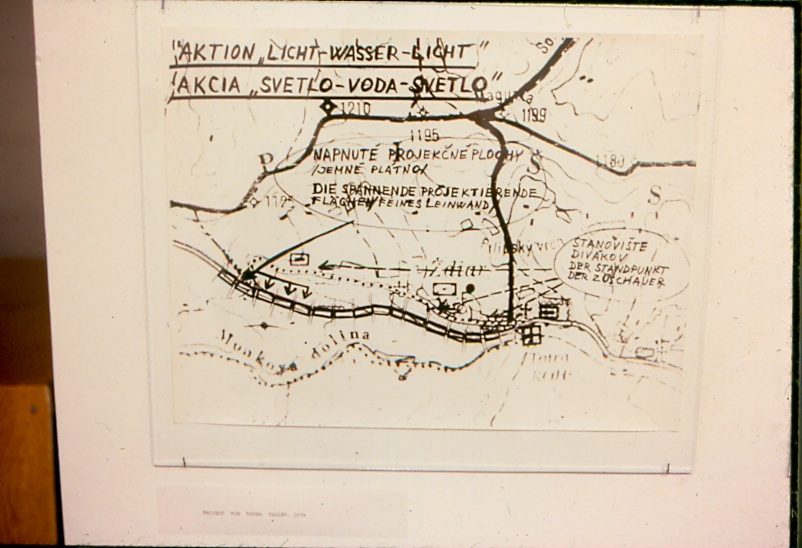 "AKTION „LICHT-WASSER-LICHT"
AKCIA „SVETLO-VODA-SVETLO"
1210
1199
1195
1180
NAPNUTÉ PROJEKČNÉ PLOCHY
/JEMNÉ PLÁTNO/
P
Š
DIE SPANNENDE PROJEKTIERENDE
FLÄCHEN/FEINES LEINWAND/
S
STANOVIŠTE
DIVÁKOV
DER STANDPUNKT
DER ZUSCHAUER
dolina
PROJECT FOR